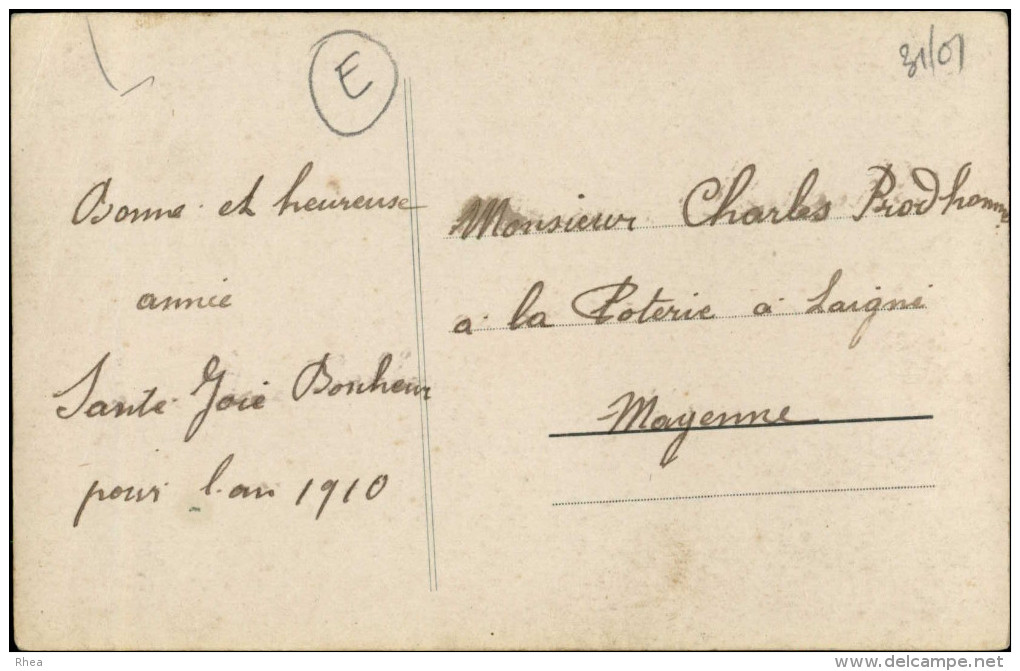 E
31/01
Bonne et heureuse
année
Santé Joie Bonheur
pour l'an 1910
Monsieur Charles Prodhomme
à la Poterie à Laigné
Mayenne
Rhea
delcampe.net